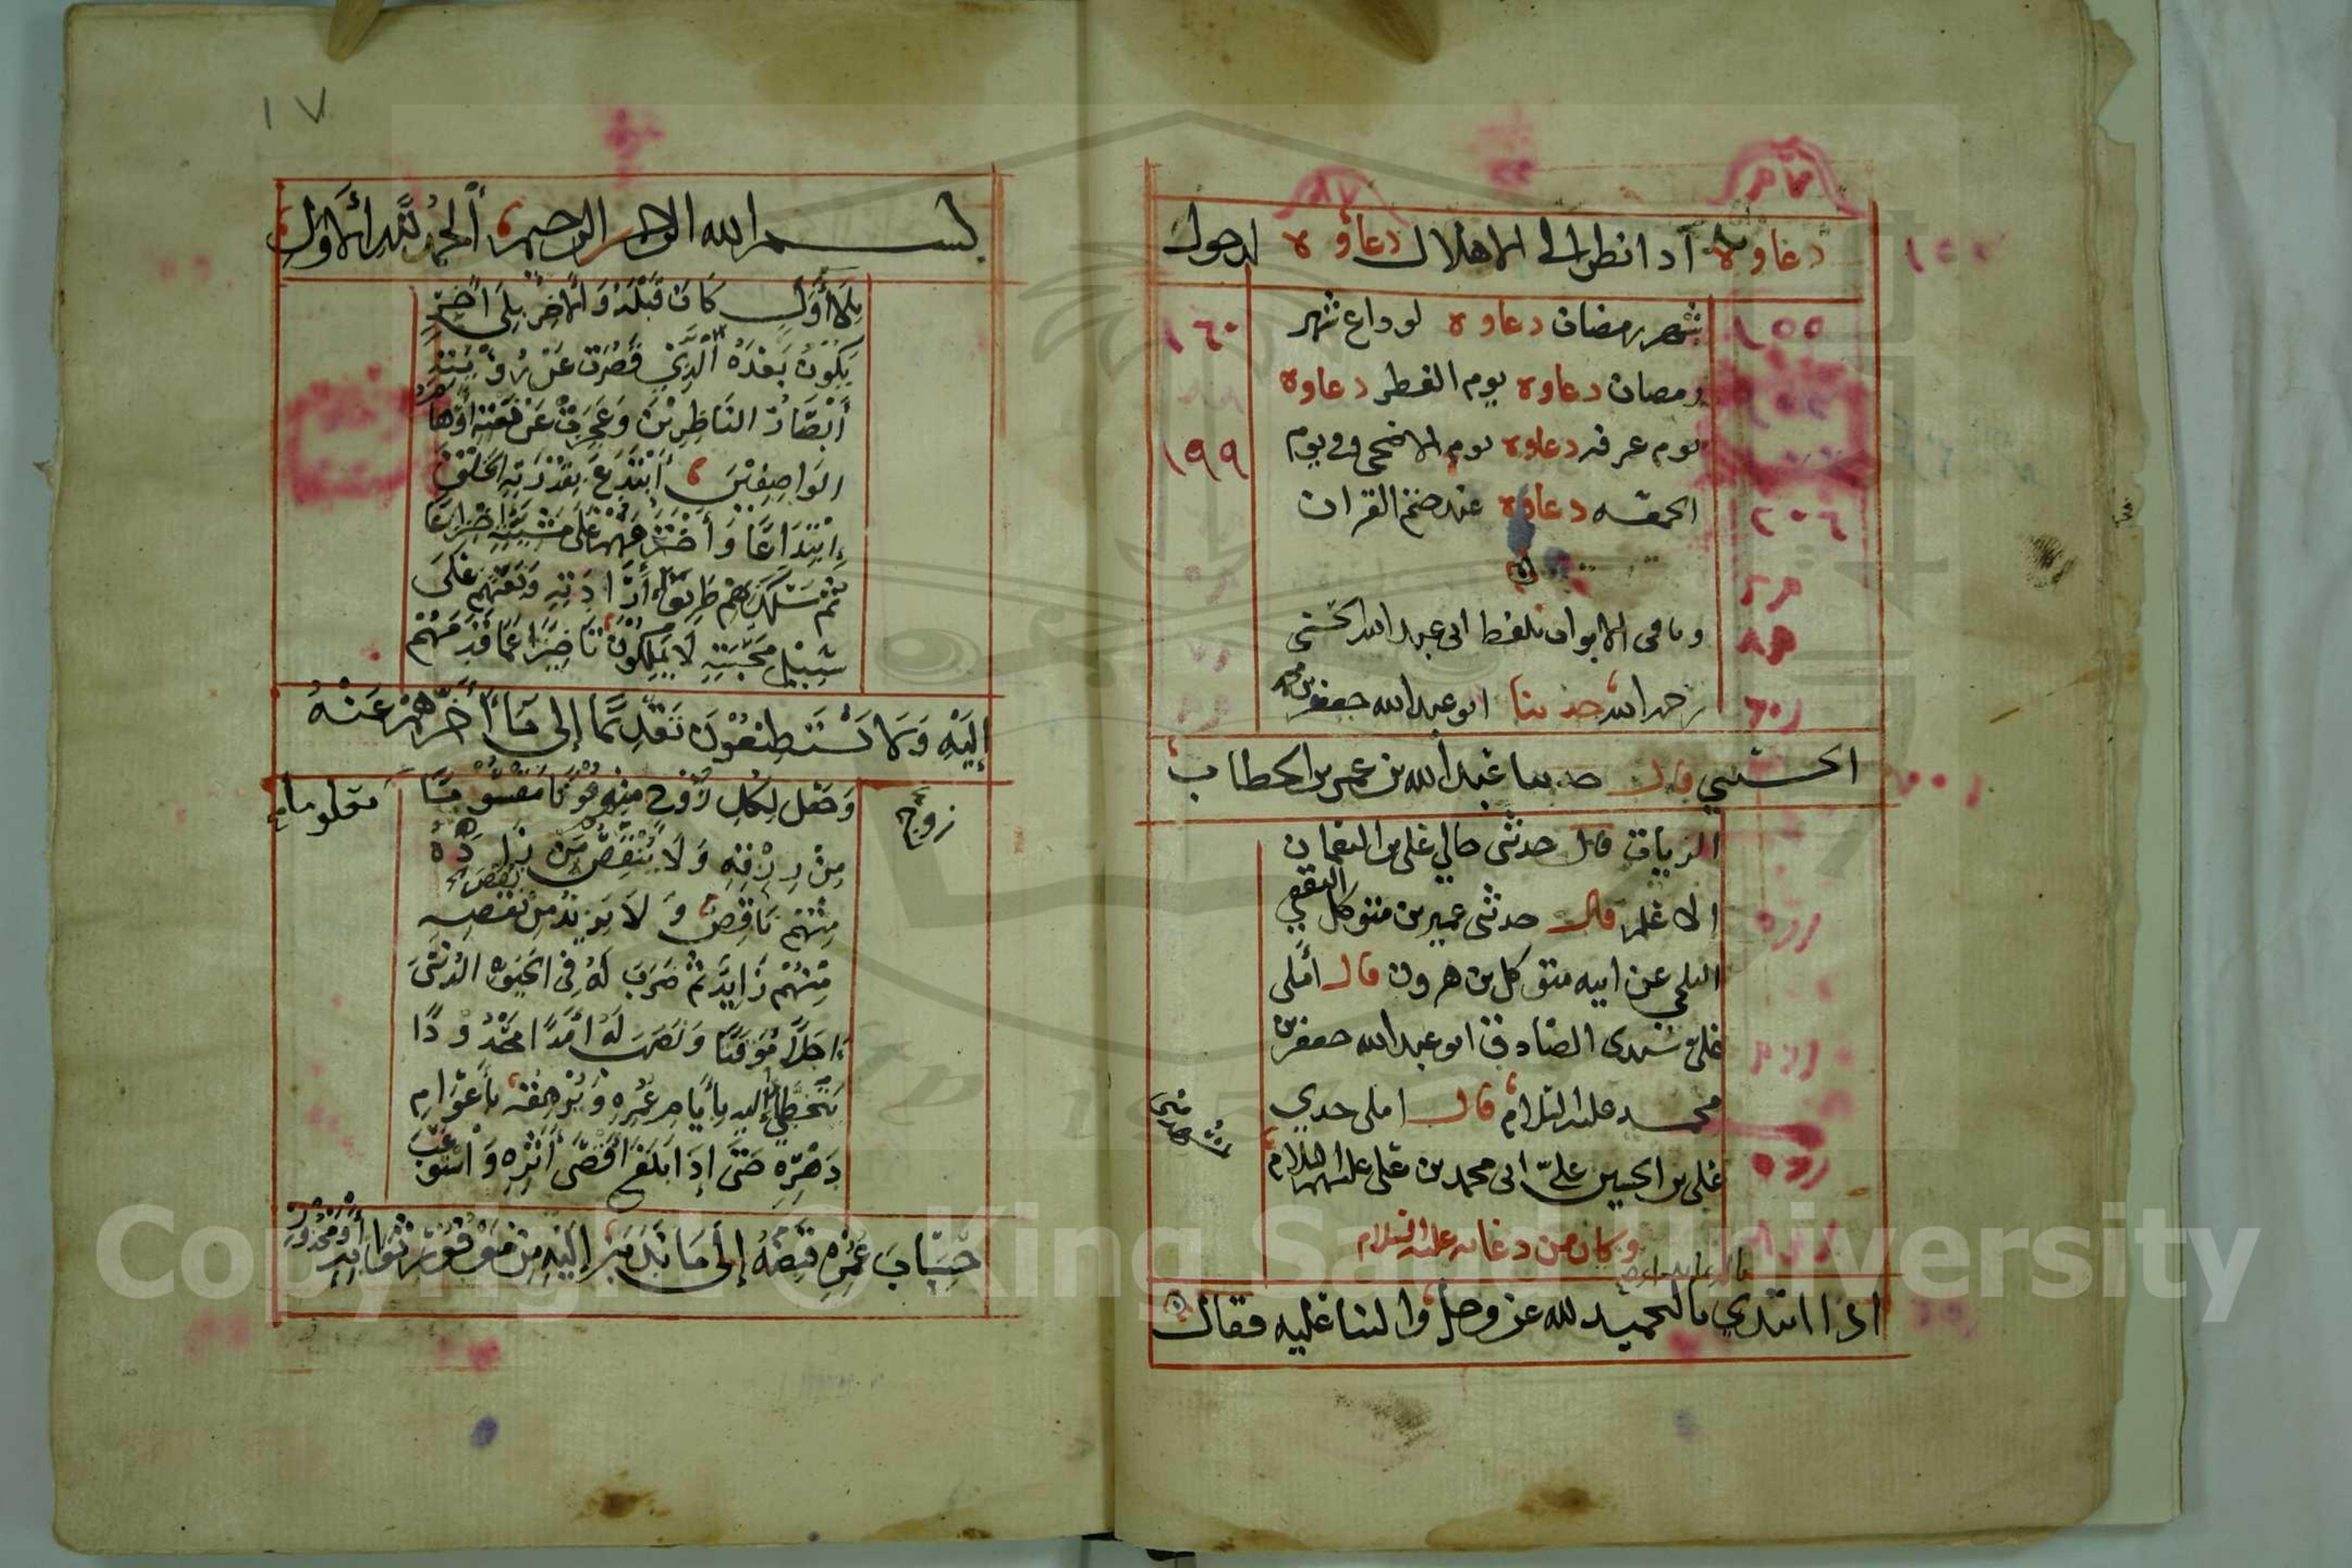 دعاوه اذا نظر الى الاهلال دعاوه لدخول
شهر رمضان دعاوه لوداع شهر
رمضان دعاوه يوم الفطر دعاوه
يوم عرفه دعاوه يوم الاضحى وفي يوم
الجمعه دعاوه عند ختم القران
وباقي الابواب بلفظ ابي عبد الله الحسني
رحمه الله حدثنا ابو عبد الله جعفر بن محمد
الحسني قال حدثنا عبد الله بن عمر بن الخطاب
الزيات قال حدثني خالي علي بن النعمان
الاعلم قال حدثني عمير بن متوكل الثقفي
البلخي عن ابيه متوكل بن هرون قال أملى
علي سيدي الصادق ابو عبد الله جعفر بن
محمد عليه السلام قال املى جدي
علي بن الحسين على ابي محمد بن علي عليهم السلام
وكان من دعائه عليه السلام
اذا ابتدي بالتحميد لله عز وجل والثنا عليه فقال
١٥٥
١٦٠
١٩٩
٢٠٦
١٧
بسم الله الرحمن الرحيم ألحمد لله الأول
بلا أول كان قبله والاخر بلى اخر
يكون بعده الذي قصرت عن رؤيته
أبصار الناظرين وعجزت عن نعته أوهام
الواصفين أبتدع بقدرته الخلق
إبتداعا وأخترعهم على مشيته اختراعا
ثم سلك بهم طريق أرادته وبعثهم على
سبيل محبته لا يملكون تاخيرا عما قدمهم
إليه ولا يستطيعون تقديما إلى ما أخرهم عنه
وجعل لكل روح منهم قوتا معلوما مقسوما
زوج
من رزقه ولا ينقص من زاده
منهم ناقص ولا يزيد من نقص
منهم زايد ثم ضرب له في الحيوه الدنيى
اجلا موقتا ونصب له أمدا محدودا
يتخطأ إليه بأيام عمره ويرهقه بأعوام
دهره حتى إذا بلغ أقصى أثره واستوعب
حساب عمره قبضه إلى ما ندبه إليه من موفور ثوابه أو محذور
Copyright © King Saud University